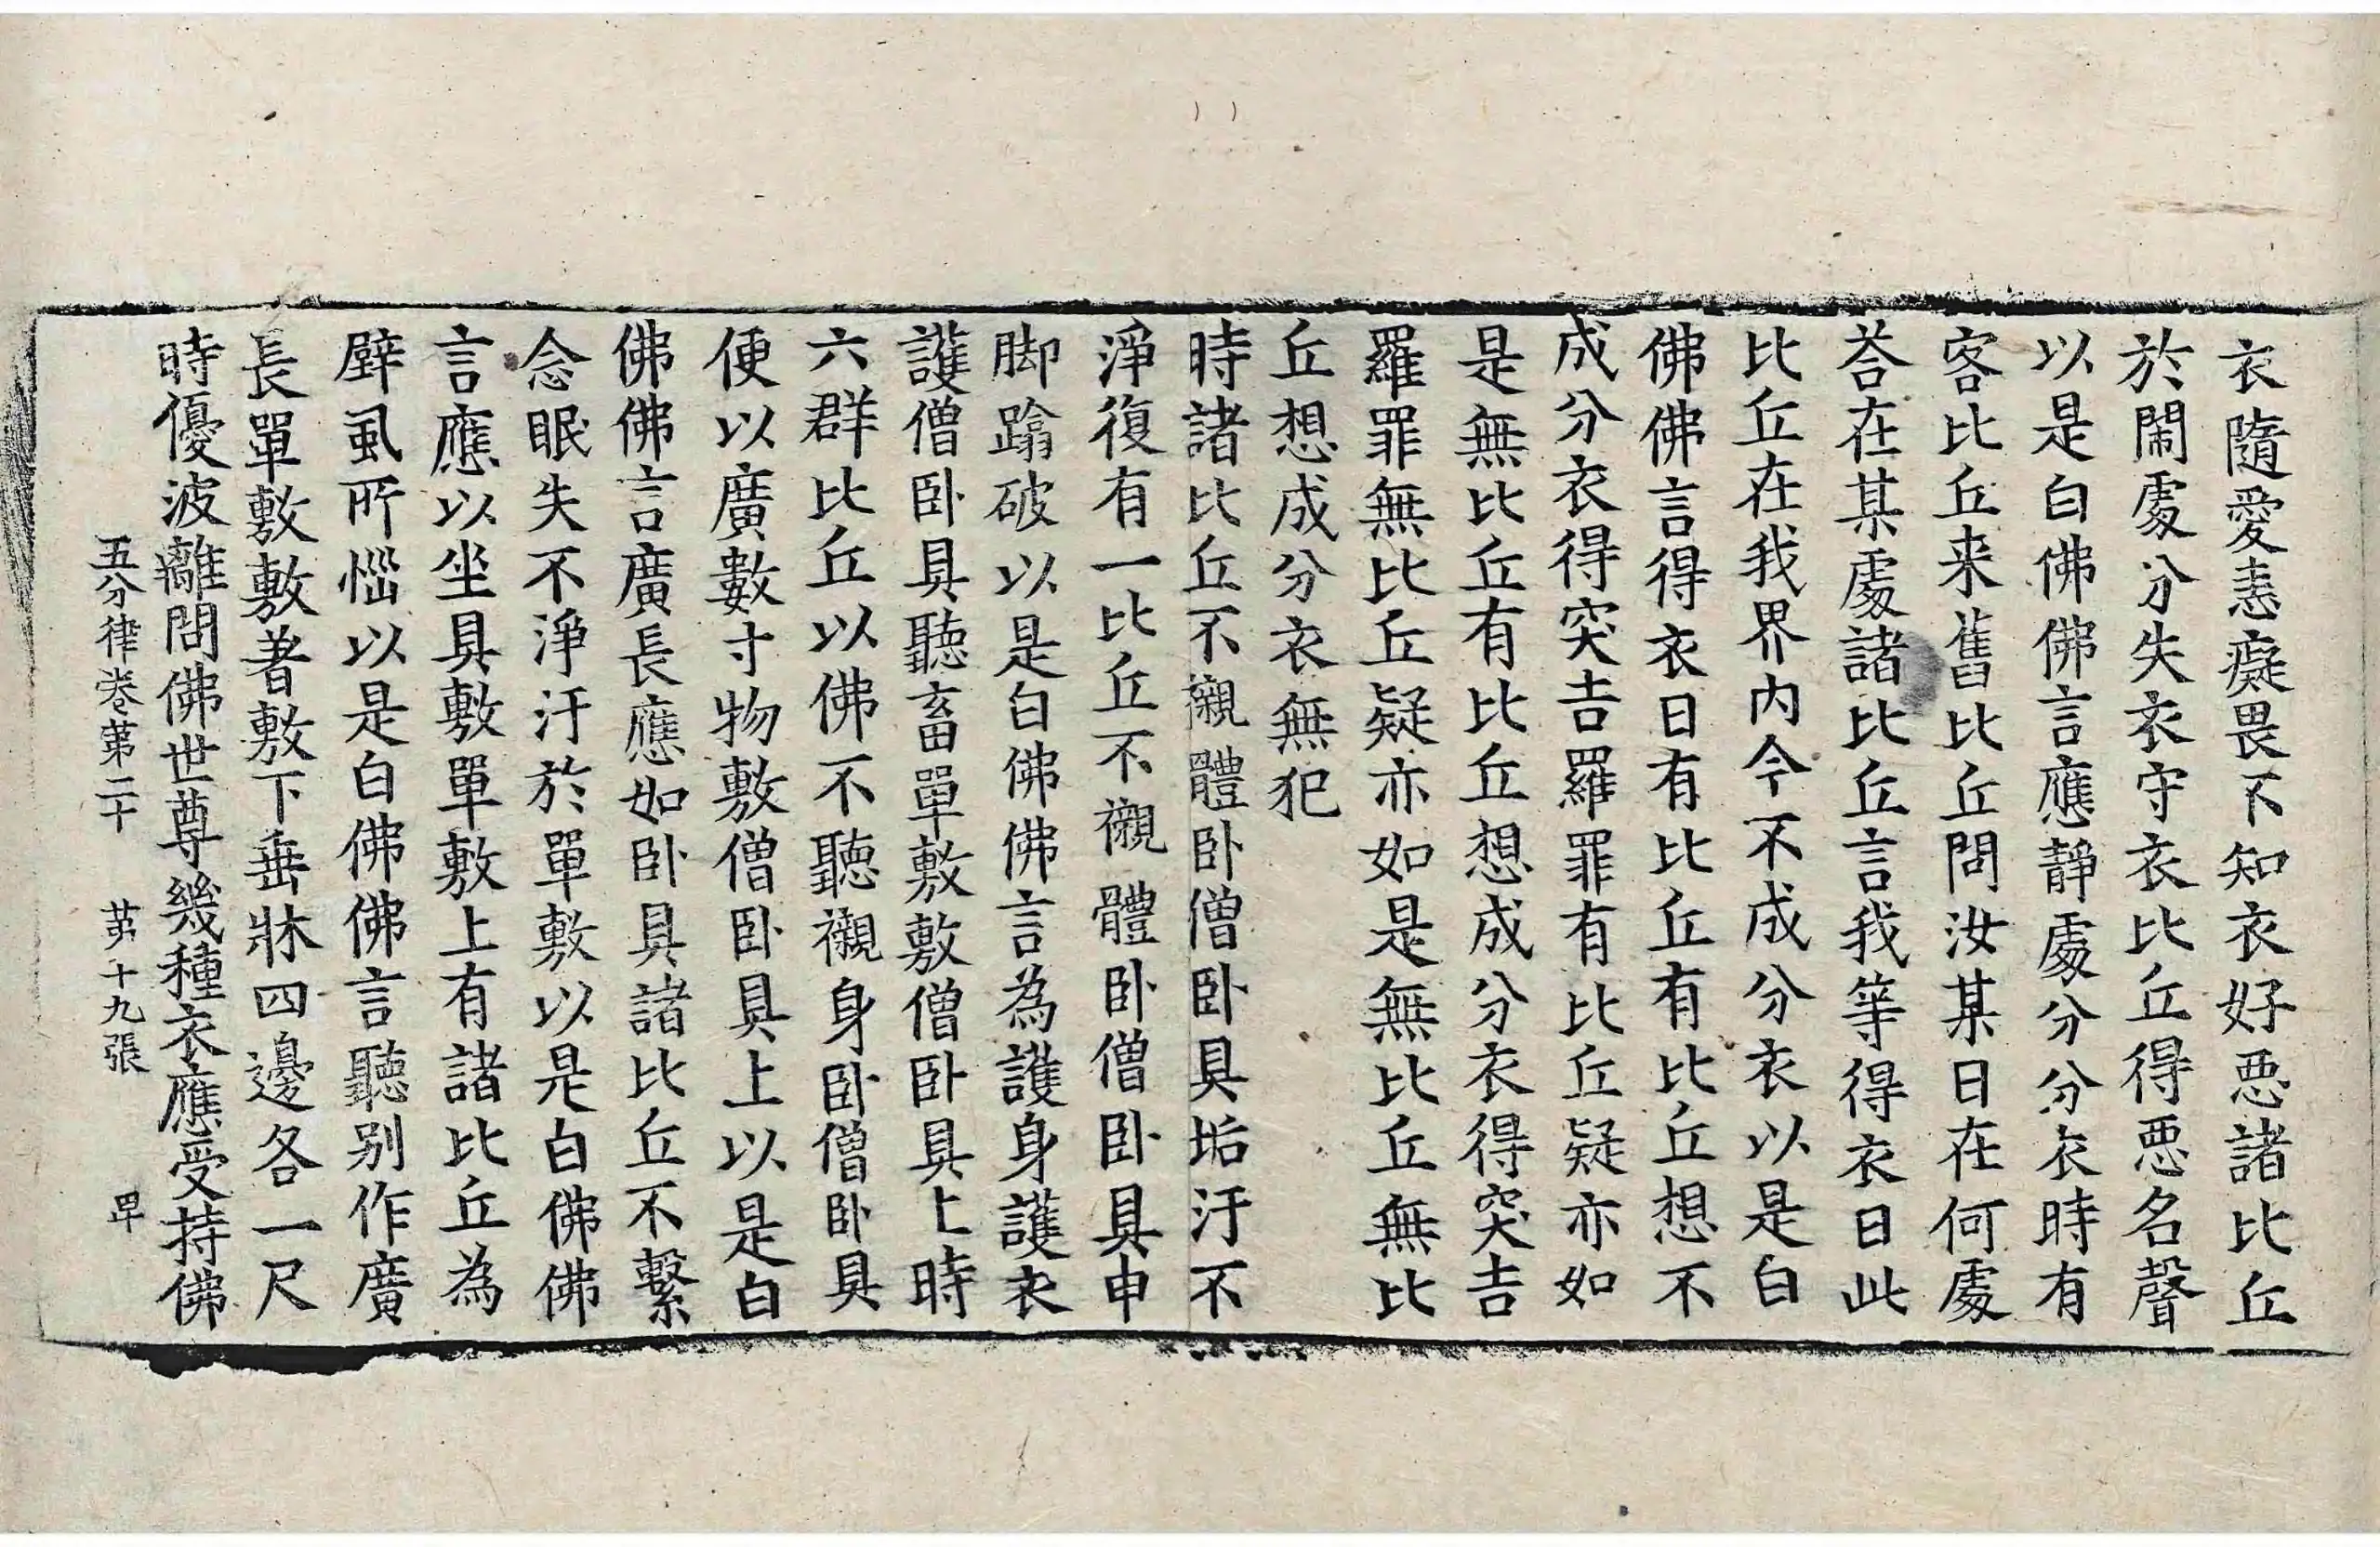 衣隨愛恚癡畏不知衣好惡諸比丘
於閙處分失衣守衣比丘得惡名聲
以是白佛佛言應靜處分分衣時有
客比丘来舊比丘問汝某日在何處
荅在某處諸比丘言我等得衣日此
比丘在我界内今不成分衣以是白
佛佛言得衣日有比丘有比丘想不
成分衣得突吉羅罪有比丘疑亦如
是無比丘有比丘想成分衣得突吉
羅罪無比丘疑亦如是無比丘無比
丘想成分衣無犯
時諸比丘不襯體卧僧卧具垢汙不
淨復有一比丘不襯體卧僧卧具申
脚蹹破以是白佛佛言為護身護衣
護僧卧具聽畜單敷敷僧卧具上時
六群比丘以佛不聽襯身卧僧卧具
便以廣數寸物敷僧卧具上以是白
佛佛言廣長應如卧具諸比丘不繫
念眠失不淨汙於單敷以是白佛佛
言應以坐具敷單敷上有諸比丘為
壁虱所惱以是白佛佛言聽别作廣
長單敷敷著敷下垂牀四邊各一尺
時優波離問佛世尊幾種衣應受持佛
五分律卷第二十 苐十九張 㽵